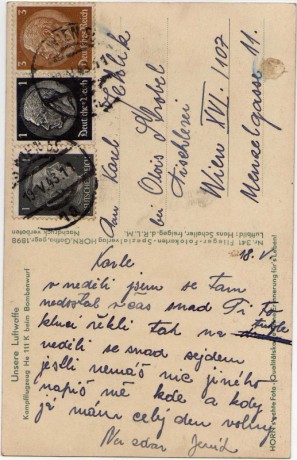 3
Deutsches Reich
1
Deutsches Reich
1
Karel
bei Alois Strobel
Tischlerei
Wien XVI. /107
Menzelgasse 11.
Nr. 341 Flieger-Fotokarten-Spezialverlag HORN, Gotha, gegr. 1898
Luftbild: Hans Schaller, freigeg. d. R.L.M.
Nachdruck verboten
Unsere Luftwaffe
Kampfflugzeug He 111 K beim Bombenwurf
18. V.
Karle
v neděli jsem se tam
nedostal včas snad Ti
kluci řekli tak na
neděli se snad sejdem
jestli nemáš nic jiného
napiš mě kde a kdy
já mám celý den volný
Na zdar